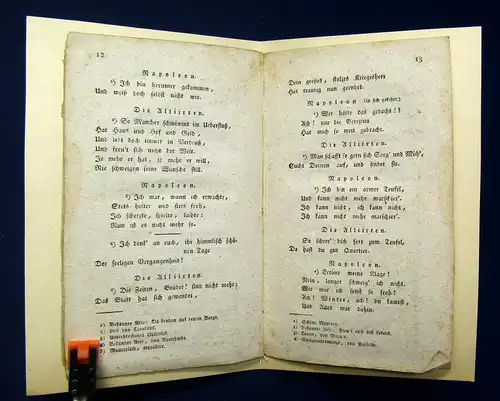 12
Napoleon.
¹) Ich bin herunter gekommen,
Und weiß doch selbst nicht wie.
Die Alliirten.
²) So Mancher schwimmt im Ueberfluß,
Hat Haus und Hof und Geld,
Und lebt doch immer in Verdruß,
Und freu't sich nicht der Welt.
Je mehr er hat, je mehr er will,
Nie schweigen seine Wünsche still.
Napoleon.
³) Ich war, wann ich erwachte,
Stets heiter und stets froh,
Ich scherzte, lachte:
Nun ist es nicht mehr so.
⁴) Ich denk' an euch, ihr himmlisch schö-
nen Tage
Der seeligen Vergangenheit!
Die Alliirten.
⁵) Die Zeiten, Brüder! sind nicht mehr;
Das Blatt hat sich gewendet,
¹) Bekannter Arie: Da droben auf jenem Berge.
13
Dein großes, stolzes Kriegesheer
Hat traurig nun geendet.
Napoleon (in sich gekehrt.)
¹) Wer hätte das gedacht!
Ach! nur die Berezina
Hat mich so weit gebracht.
Die Alliirten.
²) Man schafft so gern sich Sorg' und Müh',
Sucht Dornen auf, und findet sie.
Napoleon.
³) Ich bin ein armer Teufel,
Und kann nicht mehr marschier'.
Ich kann nicht, ich kann nicht,
Ich kann nicht mehr marschier'.
Die Alliirten.
So scheer' dich fort zum Teufel,
Da hast du gut Quartier.
Napoleon.
⁴) Ertöne meine Klage!
Nein, länger schweig' ich nicht.
Wie war ich sonst so froh!
Ach! Winter, ach! du kamest,
Und Alles war dahin.